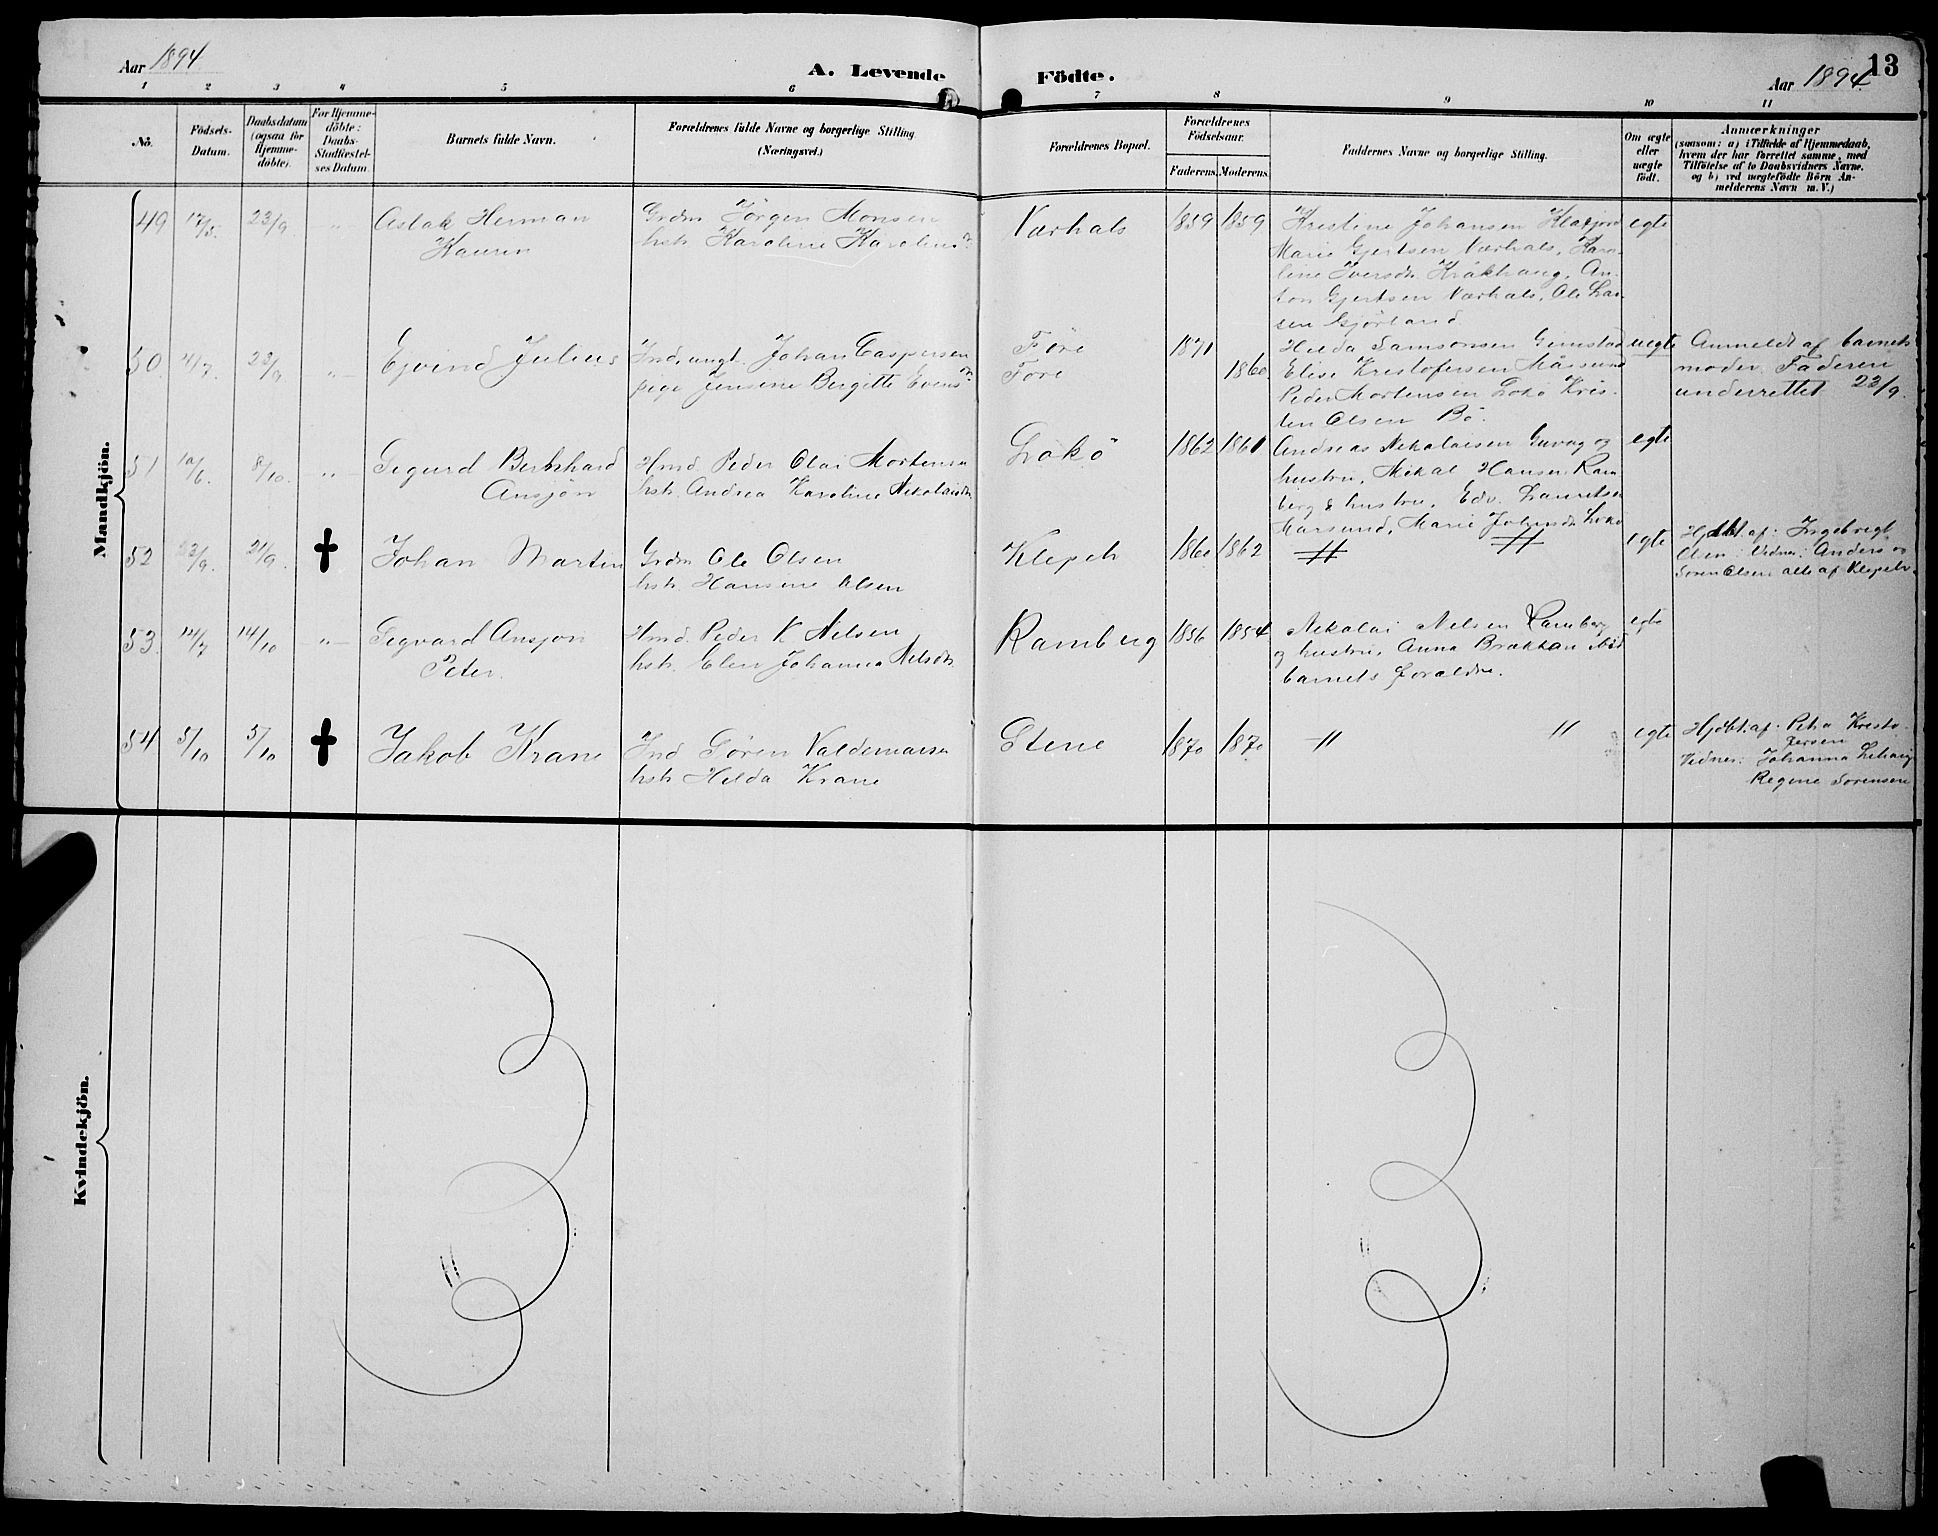 Aar 1894
A. Levende Födte.
Aar 1894
13
1 2 3 4 5 6 7 8 9 10 11
No.
Födsels-
Datum.
Daabsdatum
(ogsaa for
Hjemme-
döbte).
For Hjemme-
döbte:
Daabs-
Stadfæstel-
ses Datum.
Barnets fulde Navn.
Forældrenes fulde Navne og borgerlige Stilling
(Næringsvei.)
Forældrenes Bopæl.
Forældrenes
Födselsaar.
Faderens. Moderens.
Faddernes Navne og borgerlige Stilling.
Om ægte
eller
uægte
födt.
Anmærkninger
(saasom: a) i Tilfælde af Hjemmedaab,
hvem der har forrettet samme, med
Tilföielse af to Daabsvidners Navne,
og b) ved uegtefödte Börn An-
melderens Navn m. V.)
Mandkjön.
49 17/5. 23/9 " Aslak Herman
Hauren
Grdm Jörgen Monsen
hstr Karoline Karolius
Værhals 1859 1859
Kristine Johansen
Marie Gjertsen Værhals, Karo-
line Iversdtr Kråkhaug, An-
ton Gjertsen Værhals, Ole Lar-
sen Gjörland
egte
50. 4/7. 23/9 " Ejvind Julius
Ind, ungk. Johan Caspersen
pige Jensine Bergitte Evens
Före 1871
Före 1860.
Hilda Samsonsen Gimstad
Elise Kristofersen Mårsund
Peder Mortensen Lokö Kris-
ten Olsen Bö.
uegte
Anmeldt af barnets
moder. Faderen
underrettet 23/9.
51 10/6. 8/10. " Sigurd Bernhard
Ansjön
Hmd. Peder Olai Mortensen
hstr. Andrea Karoline Nikolaisdtr
Lokö 1862 1861
Andreas Nikolaisen Guvåg og
hustru, Mikal Hansen Ram-
berg & hustru, Edv. Lauritsen
Marsund, Marie Johnsdtr Lokö
egte
52 23/9. 24/9. ✝ Johan Martin
Grdm Ole Olsen
hstr. Hansine Olsen
Klepeh 1860 1862 " "
egte
af: Ingebrigt
Olsen. Vidner: Anders og
Sören Olsen alle af Klepeh.
53. 12/7 14/10 " Sigvard Ansjon
Peter.
Hmd. Peder K Nilsen
hstr. Elen Johanna Nilsdtr
Ramberg 1856 1854
Nikolai Nilsen Ramberg
og hustru, Anna Brækkan ibid
barnets forældre.
egte
54 5/10 5/10 ✝ Jakob Krane
Ind Sören Valdemarsen
hstr Hilda Krane
Stene 1870 1870 " "
egte
Hjdbt. af: Petra Kristo-
fersen
Vidner: Johanna
Regine Sörensen
Kvindekjön.
" "